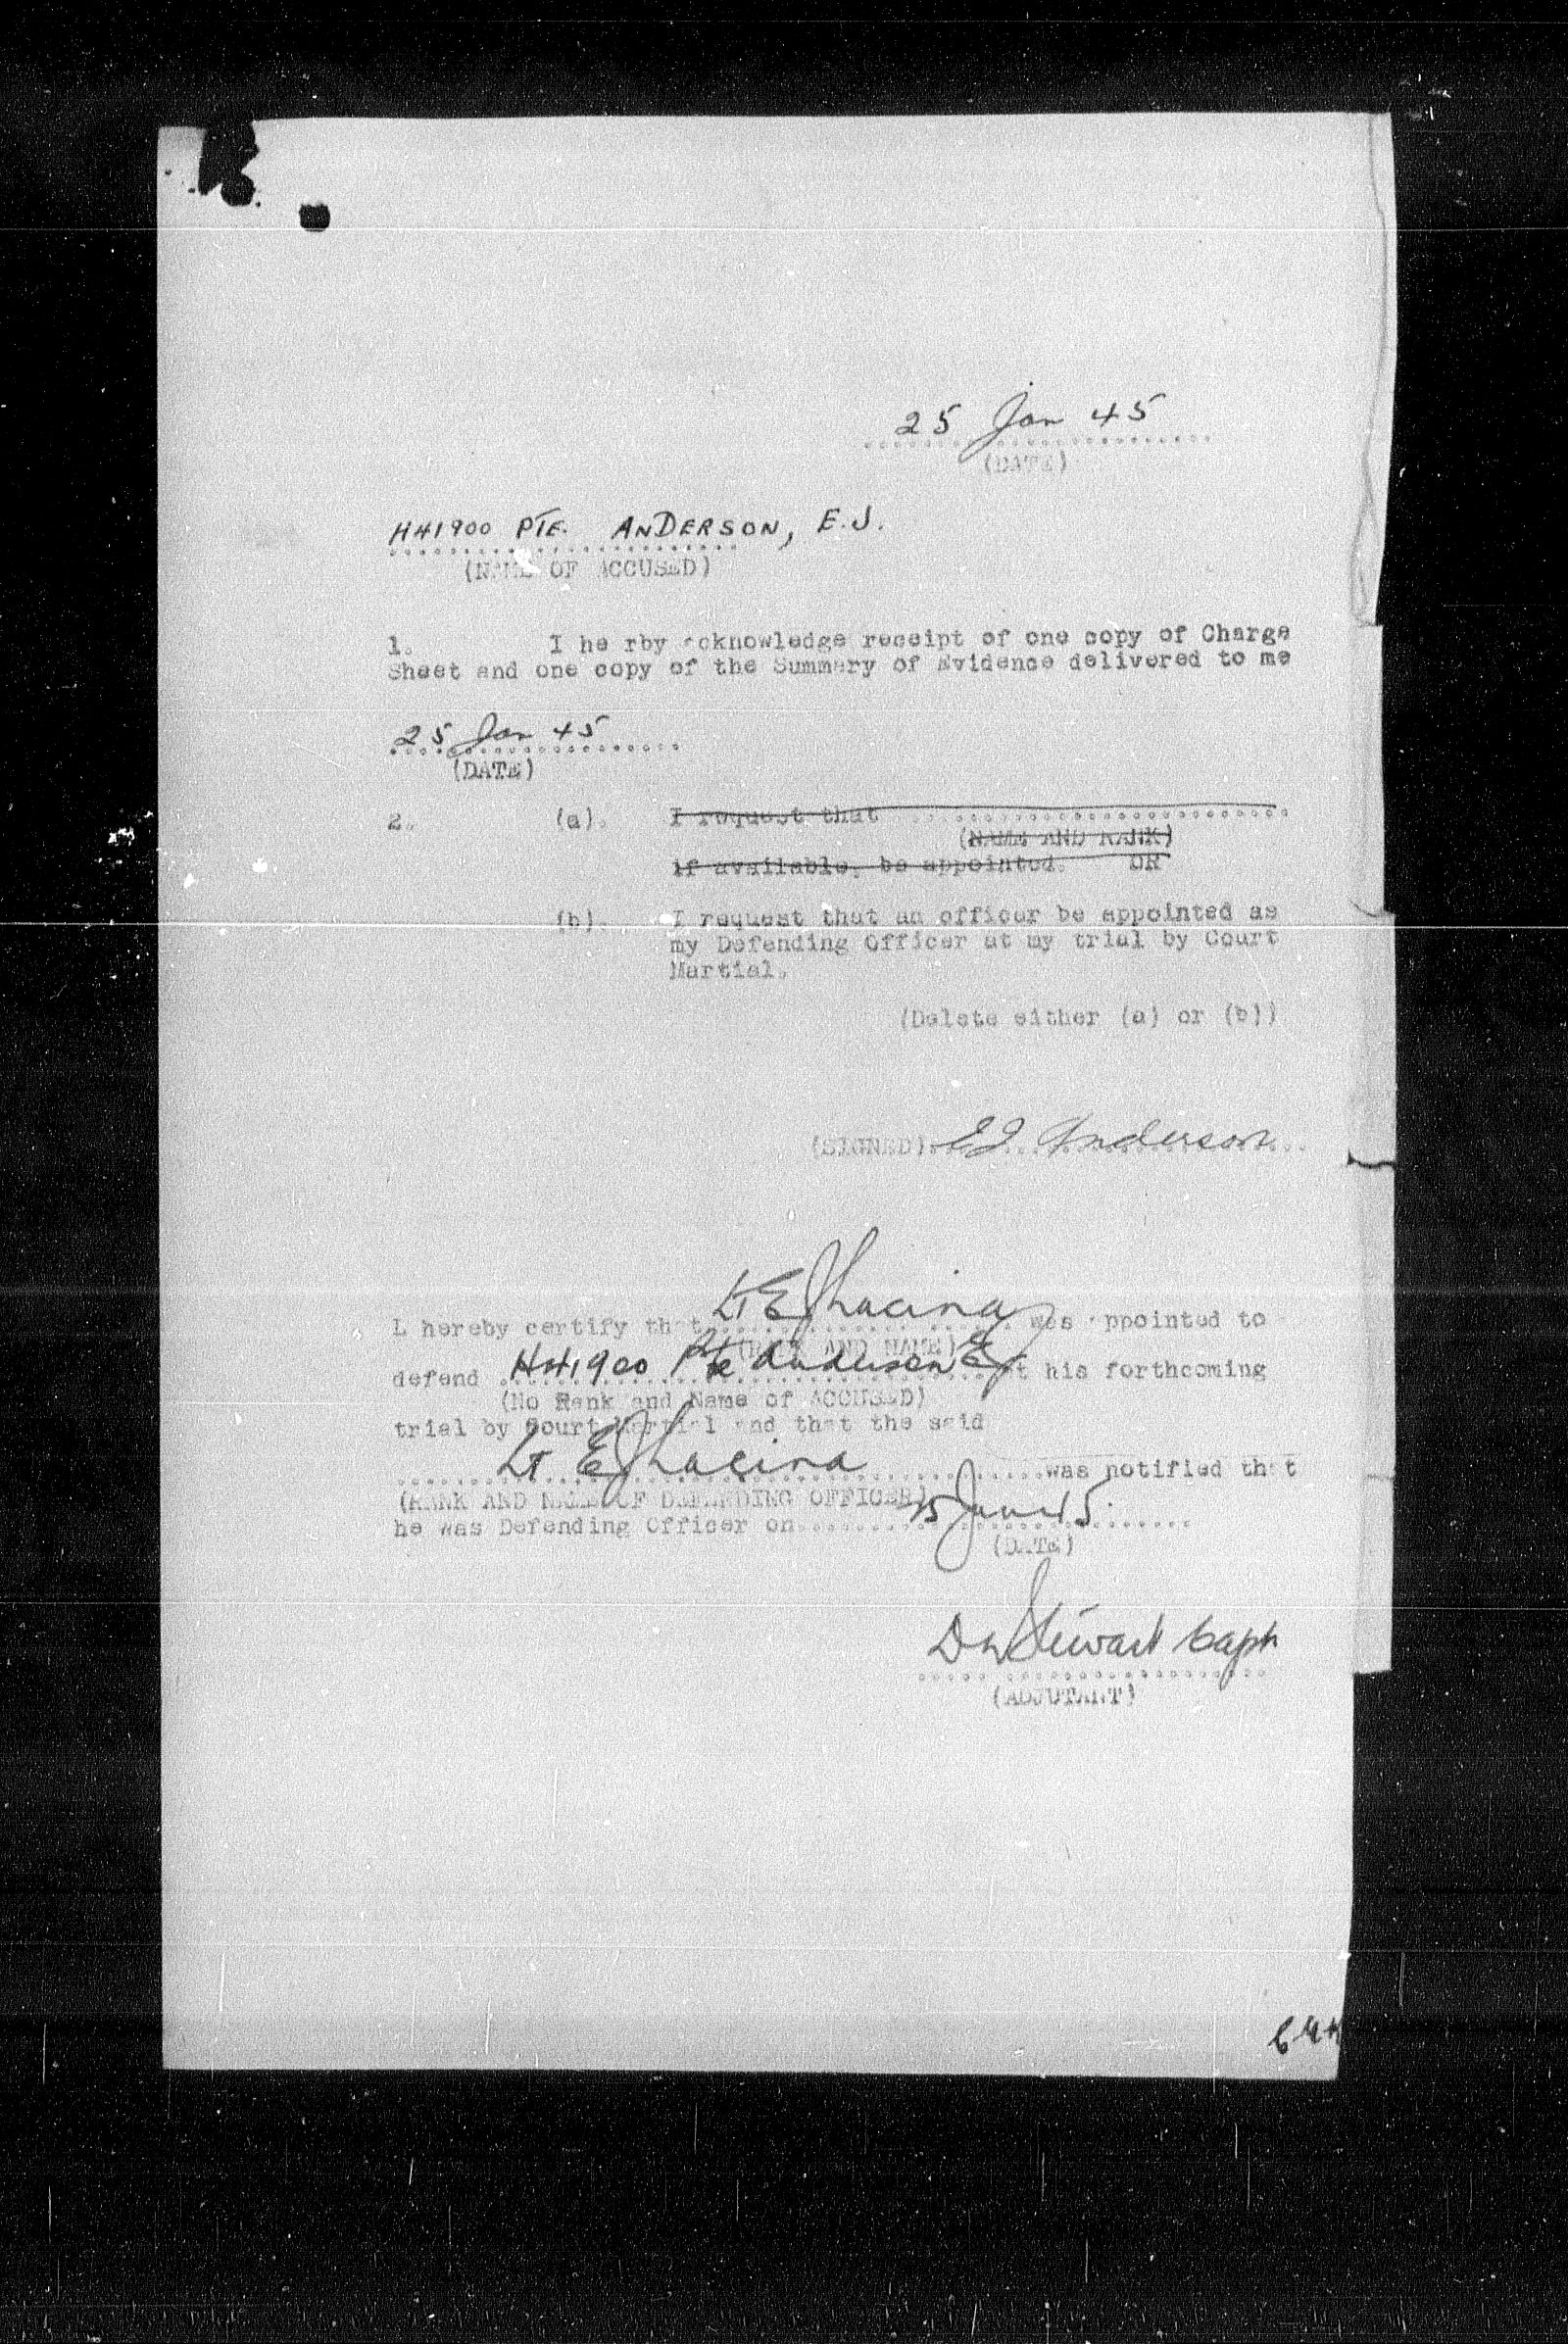 25 Jan 45
(DATE)
H41900 PTE. ANDERSON, E.J.
(NAME OF ACCUSED)
1. I he rby acknowledge receipt of one copy of Charge
Sheet and one copy of the Summary of Evidence delivered to me
25 Jan 45
(DATE)
2. (a). I request that
(NAME AND RANK)
if available, be appointed. OR
(b). I request that an officer be appointed as
my Defending Officer at my trial by Court
Martial.
(Delete either (a) or (b))
(SIGNED) EJ Anderson
LT E J
I hereby certify that was appointed to
(RANK AND NAME)
defend H41900 Pte Anderson EJ at his forthcoming
(No Rank and Name of ACCUSED)
trial by Court Martial and that the said
LT E J was notified that
(RANK AND NAME OF DEFENDING OFFICER)
he was Defending Officer on 25 Jan 45.
(DATE)
Stewart Capt
(ADJUTANT)